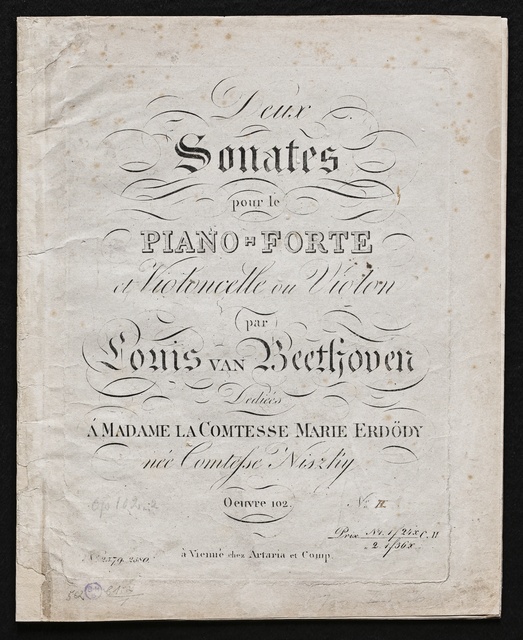 Deux
Sonates
pour le
PIANO-FORTE
et Violoncelle ou Violon
par
Louis VAN Beethoven
Dediées
Á MADAME LA COMTESSE MARIE ERDÖDY
née Comtesse Niszky
Oeuvre 102. No. II.
Prix No. 1. 1f 24x C.M
2. 1f 36x
No. 2579. 2580. à Vienne chez Artaria et Comp.